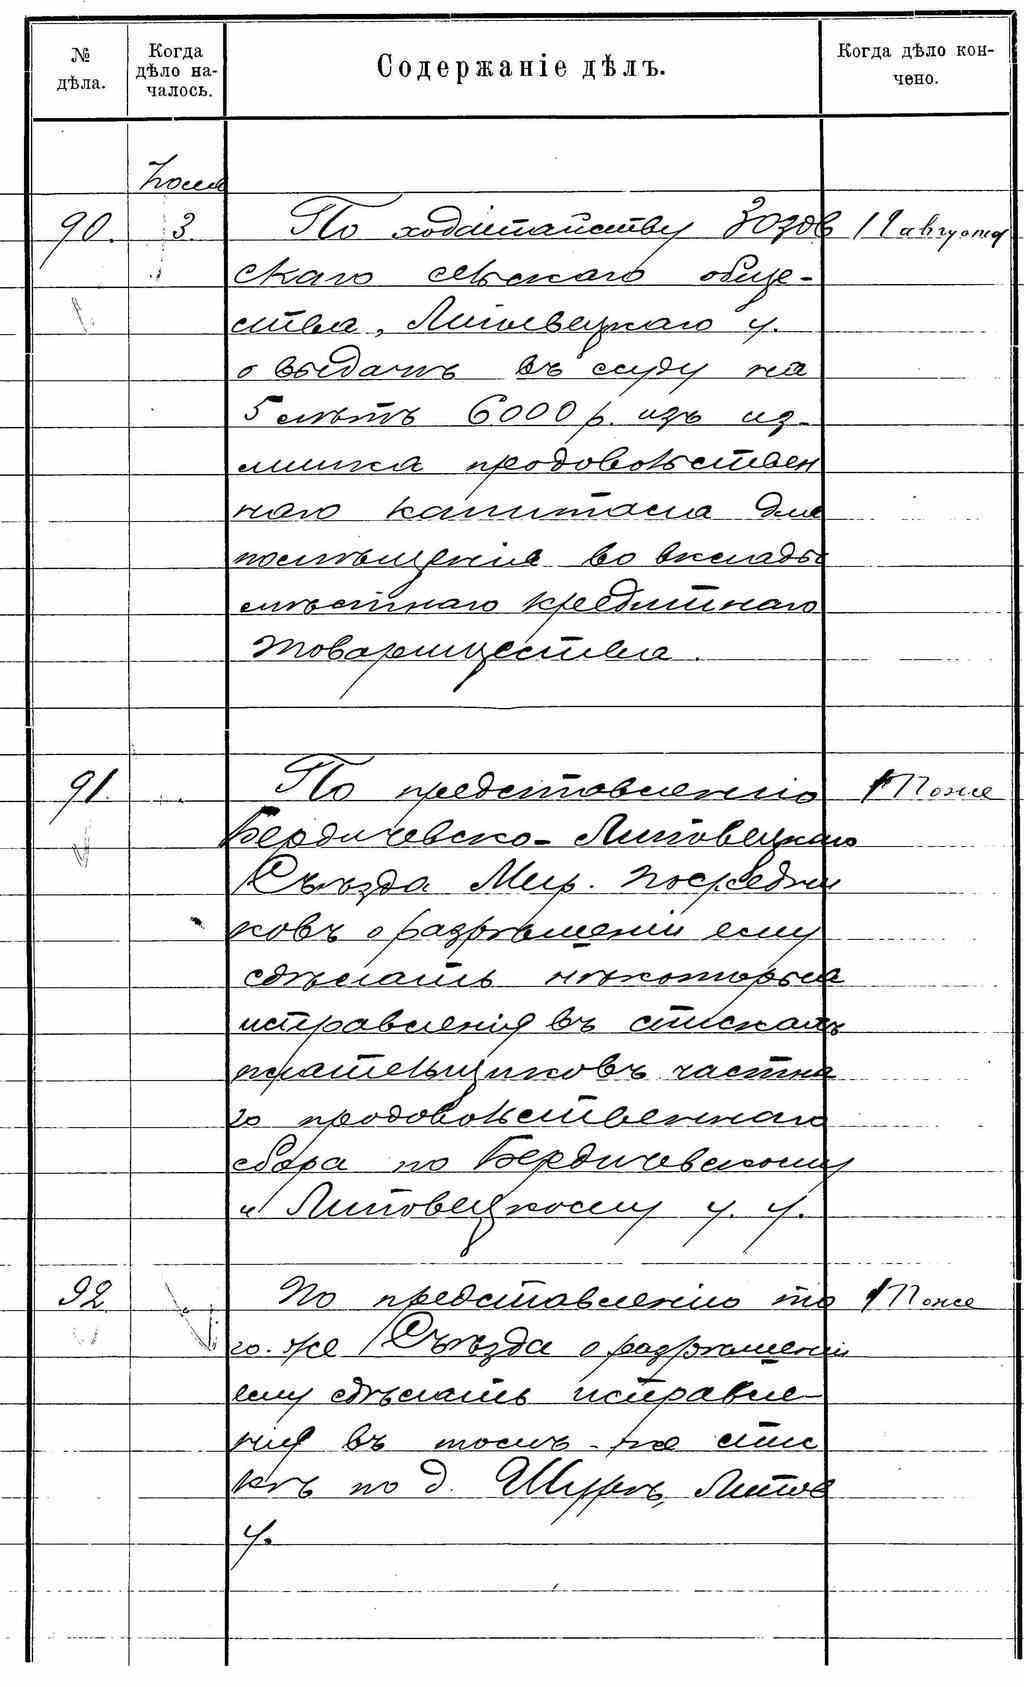 № дѣла.
Когда дѣло на-
чалось.
Содержаніе дѣлъ.
Когда дѣло кон-
чено.
Іюля
90.
3.
По ходатайству Зозов
12 августа
скаго сельскаго обще-
ства, Липовецкаго у.
о выдачѣ въ суду на
5 лѣтъ 6000 р. изъ из-
лишка продовольствен
наго капитала для
помѣщенія во вклады
мѣстнаго кредитнаго
товарищества.
91.
По представленію
Тоже
Бердичевско-Липовецкаго
Съѣзда Мир. Посредни
ковъ о разрѣшеніи ему
сдѣлать нѣкоторыя
исправленія въ спискахъ
плательщиковъ частна
го продовольственнаго
сбора по Бердичевскому
и Липовецкому у. у.
92.
По представленію то
Тоже
го-же Съѣзда о разрѣшеніи
ему сдѣлать исправле-
нія въ томъ-же спис
кѣ по д. Шуркѣ, Липов
у.